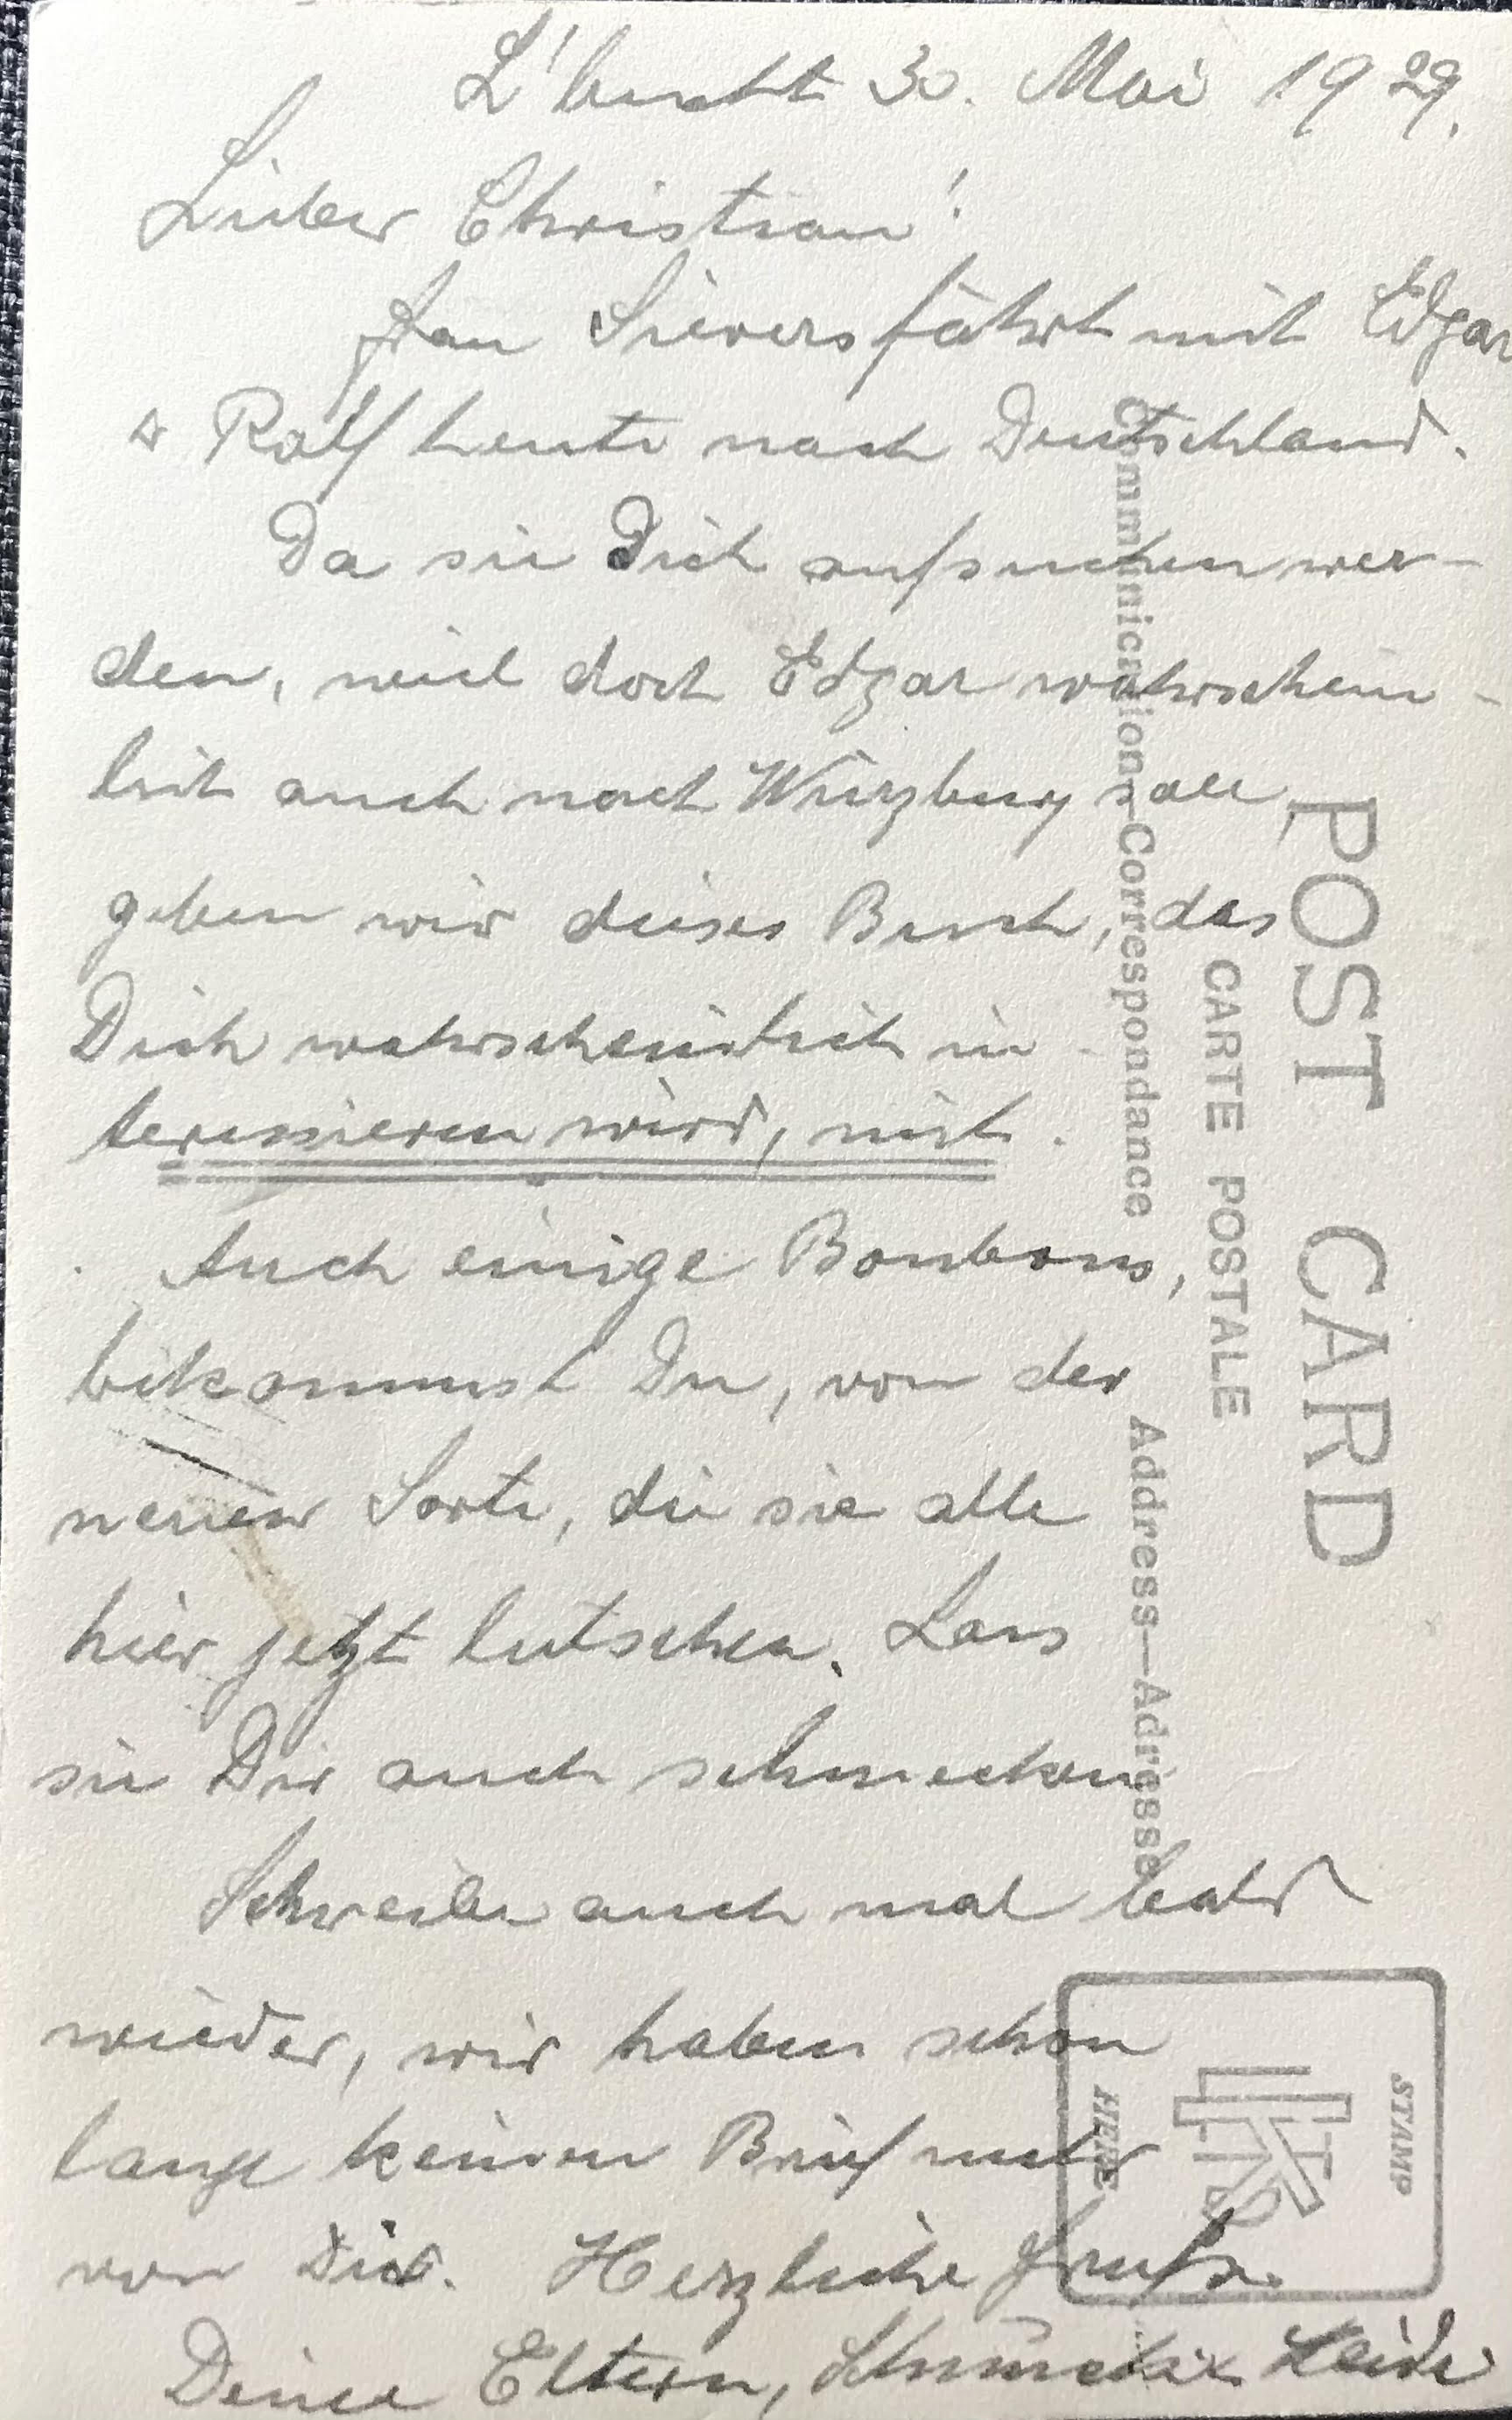 L'bucht 30. Mai 1929.
Lieber Christian!
Frau Sievers fährt mit Edgar
& Ralf heute nach Deutschland.
Da sie Dich aufsuchen wer-
den, weil doch Edgar wahrschein-
lich auch nach Würzburg soll,
geben wir dieses Buch, das
Dich wahrscheinlich in-
teressieren wird, mit.
Auch einige Bonbons,
bekommst Du, von der
neuen Sorte, die sie alle
hier jetzt lutschen. Lass
sie Dir auch schmecken
Schreibe auch mal bald
wieder, wir haben schon
lange keinen Brief mehr
von Dir. Herzliche Grüße.
Deine Eltern,
POST CARD
CARTE POSTALE
Communication—Correspondance
Address—Adresse
STAMP
HERE